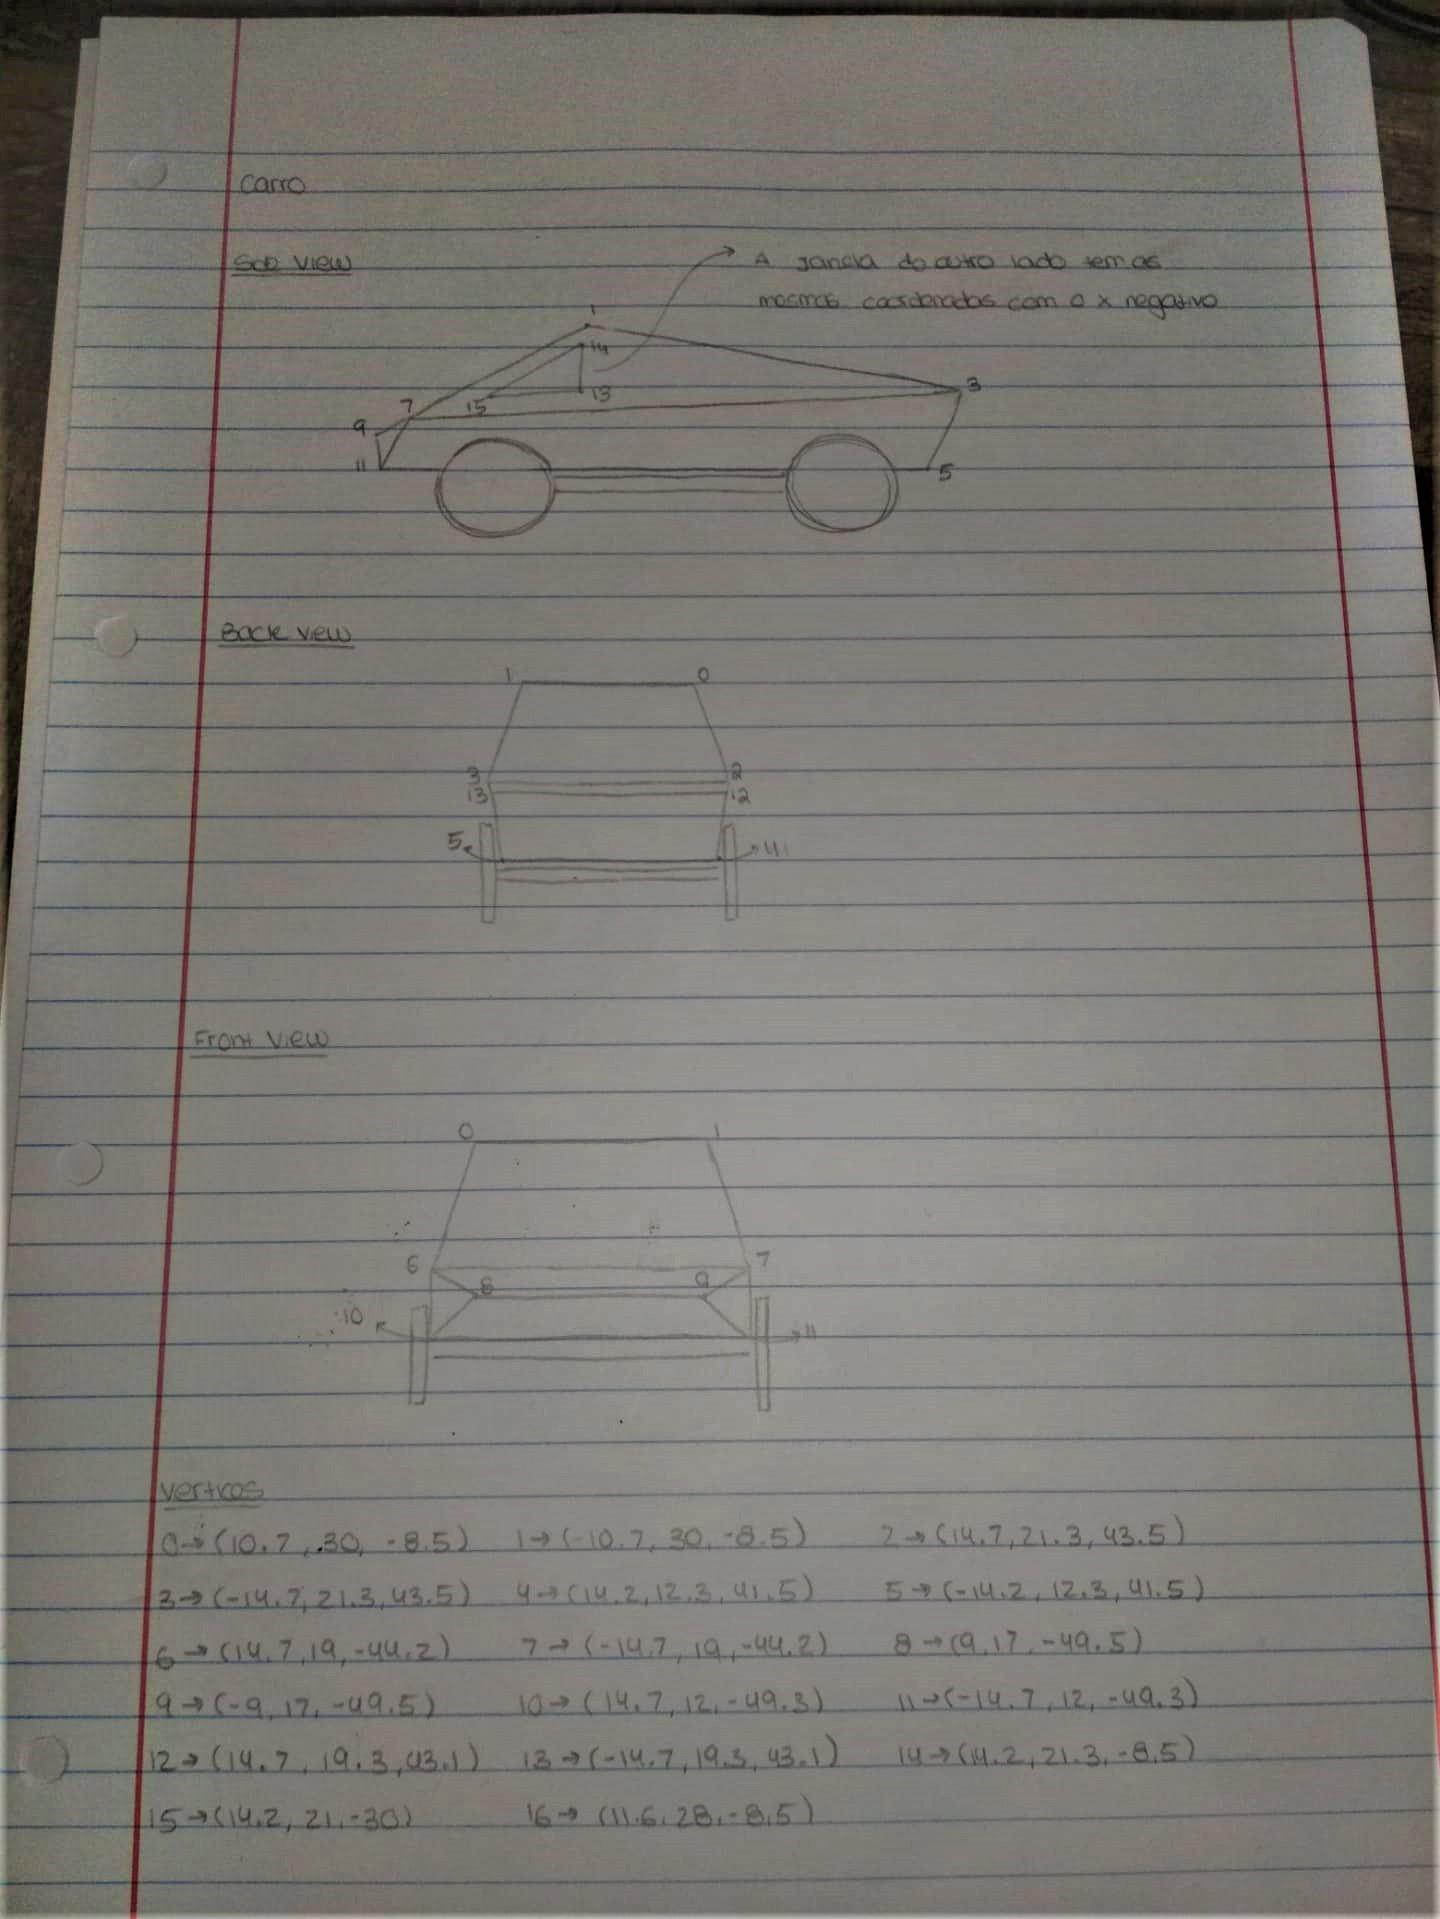 Carro
Side View
A janela do outro lado tem as
mesmas coordenadas com o x negativo
1
14
3
13
7
15
9
11
5
Back view
1 0
3 2
13 12
5 4
Front View
0 1
6 7
8 9
10 11
Vertices
0→(10.7, 30, -8.5) 1→(-10.7, 30, -8.5) 2→(14.7, 21.3, 43.5)
3→(-14.7, 21.3, 43.5) 4→(14.2, 12.3, 41.5) 5→(-14.2, 12.3, 41.5)
6→(14.7, 19, -44.2) 7→(-14.7, 19, -44.2) 8→(9, 17, -49.5)
9→(-9, 17, -49.5) 10→(14.7, 12, -49.3) 11→(-14.7, 12, -49.3)
12→(14.7, 19.3, 43.1) 13→(-14.7, 19.3, 43.1) 14→(14.2, 21.3, -8.5)
15→(14.2, 21, -30) 16→(11.6, 28, -8.5)